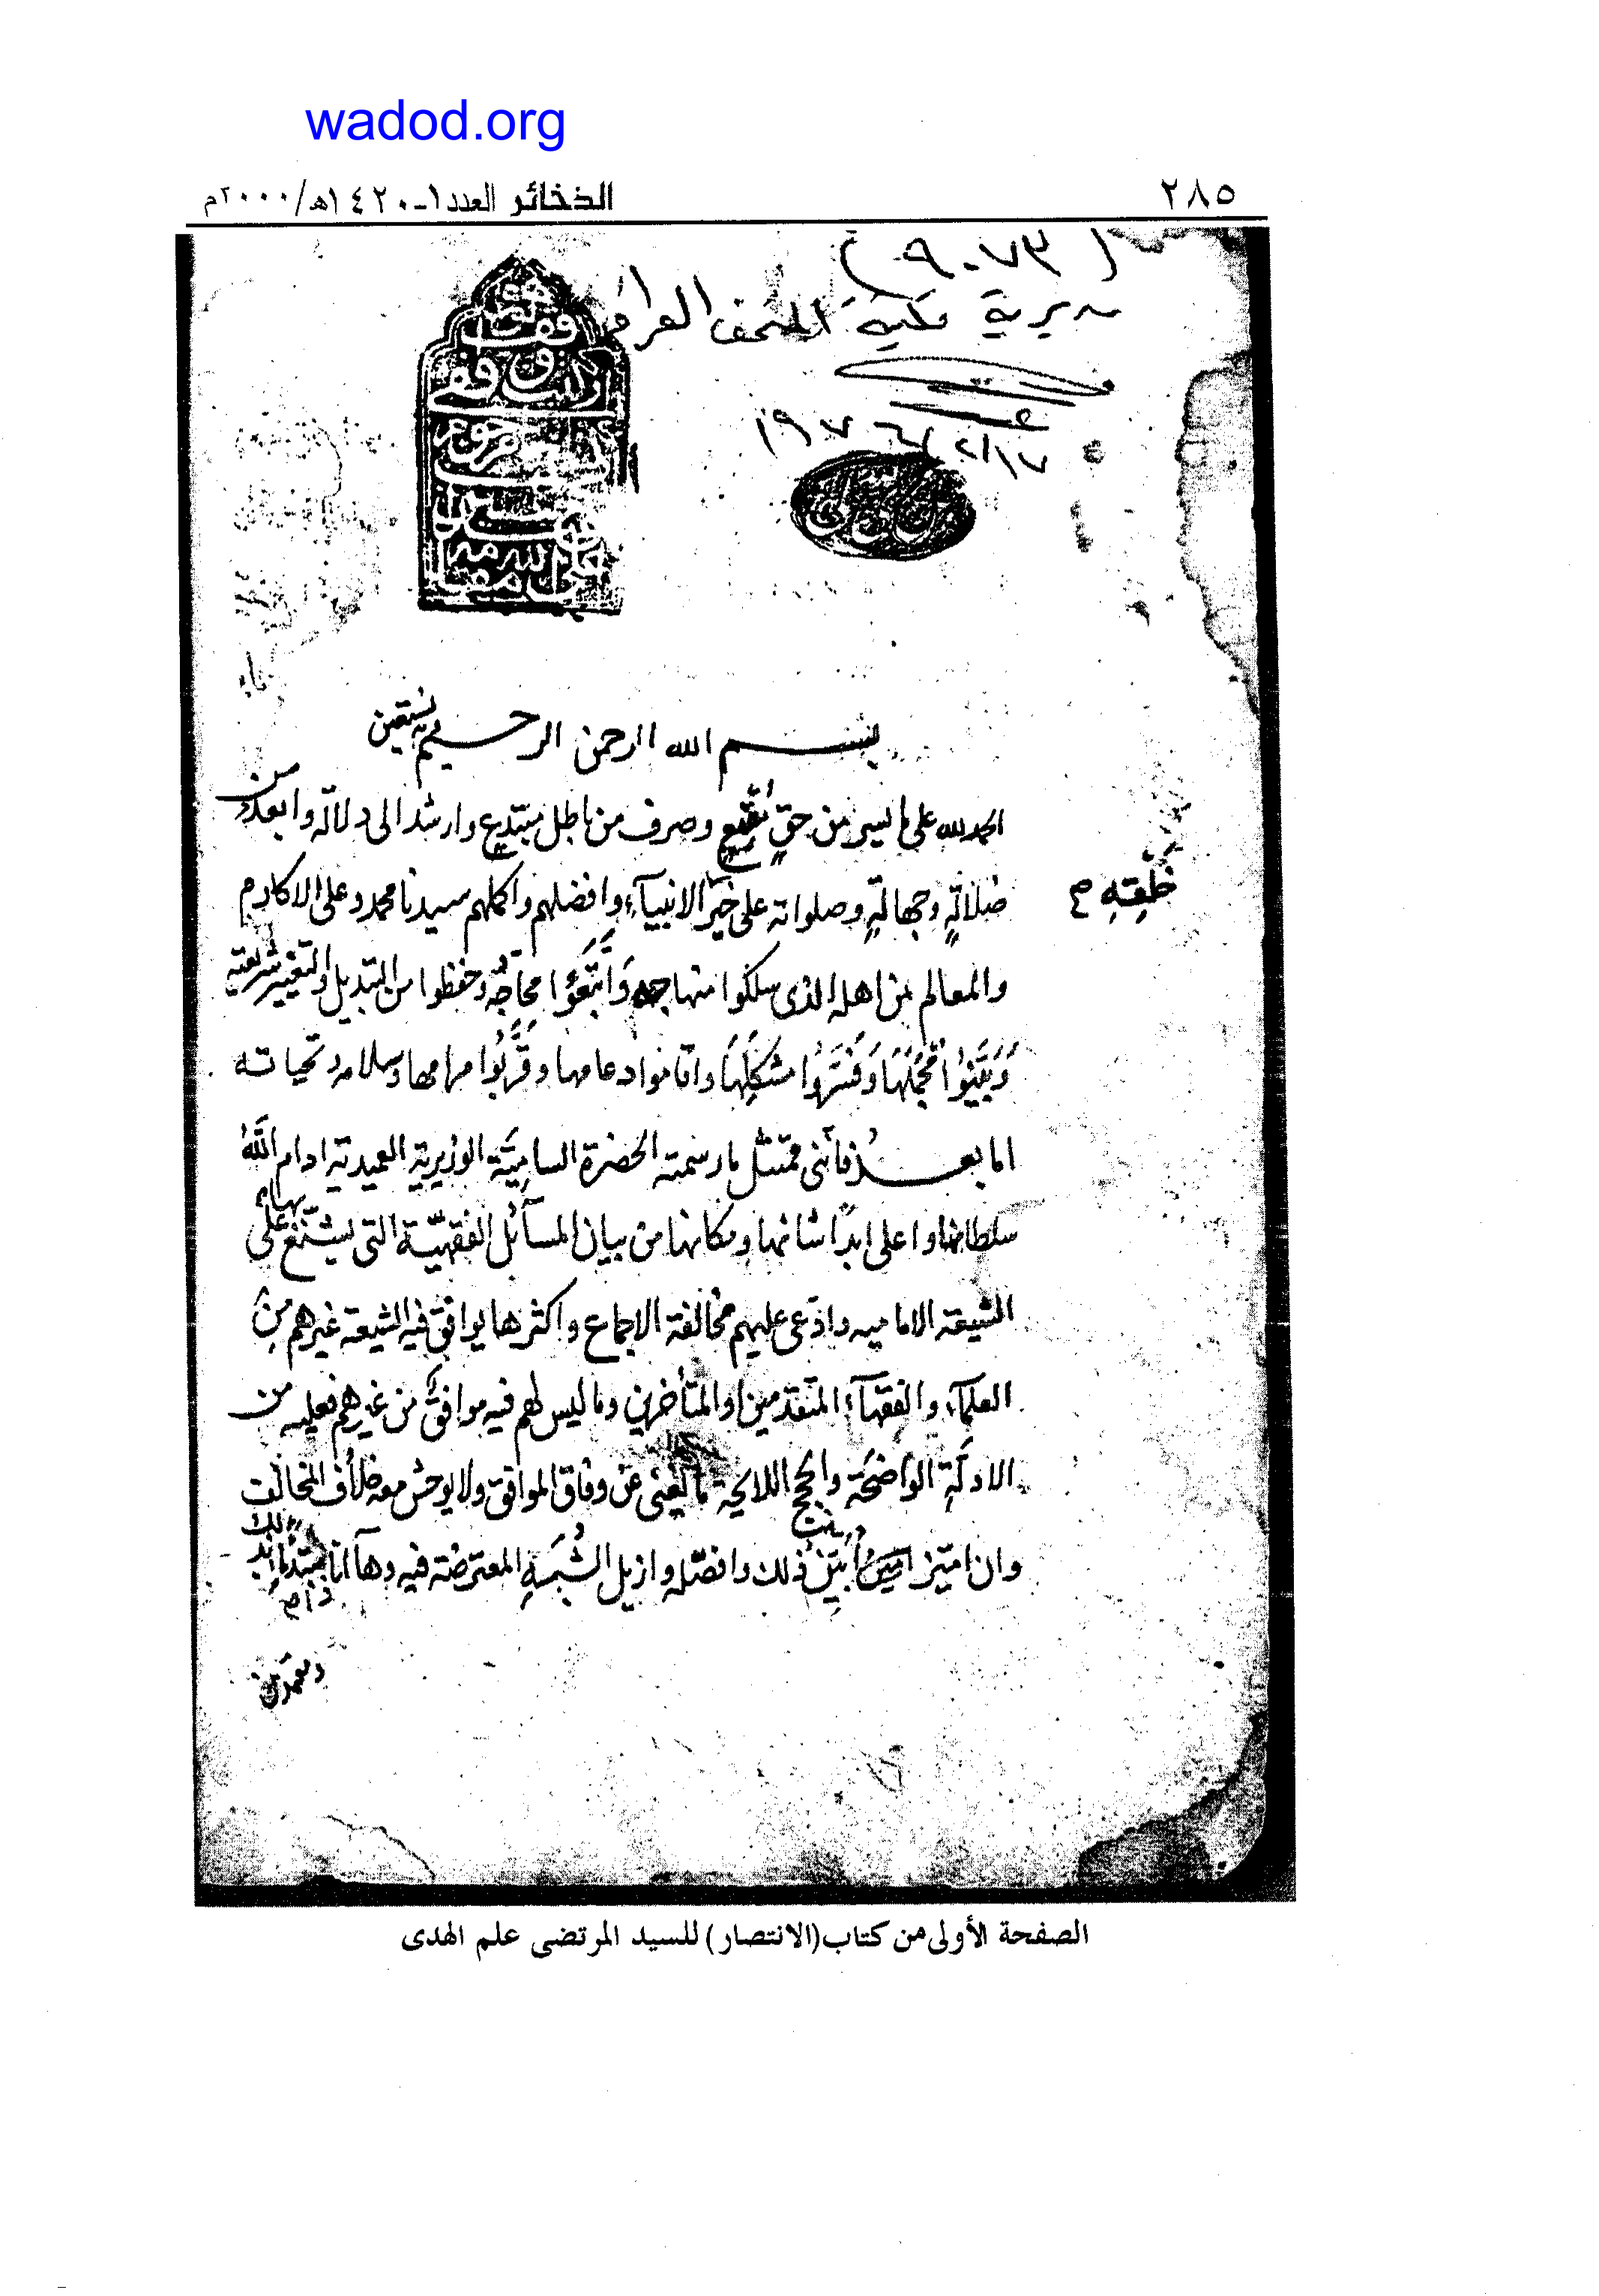 wadod.org
٢٨٥
الذخائر العدد ١-١٤٢٠هـ/٢٠٠٠م
(٩٠٧٣)
مديرية مكتبة المتحف العراقي
بسم الله الرحمن الرحيم وبه نستعين
الحمد لله على ما يسر من حق متبع وصرف من باطل مبتدع وارشد الى دلالة وابعد من
ضلالةٍ وجهالةٍ وصلواته على خير الانبياء وافضلهم واكملهم سيدنا محمد وعلى الاكارم
خلقه
والمعالم من اهله الذى سلكوا منهاجه وَاتَّبَعُوا محاجّه وحفظوا من التبديل والتغيير شريعته
وَبَيَّنُوا مُجْمَلَهَا وَفَسَّرُوا مشكِلَهَا واقاموا دعامها وقَرَّبُوا مرامها وسلامه وتحياته
اما بعد فأننى ممتثل ما رسمته الحضرة السامِيَّة الوزيرية العميدية ادام اللهُ
سلطانها واعلى ابدًا شانها ومكانها من بيان المسائل الفقهيّة التى يشنّع بها على
الشيعة الاماميه وادّعى عليهم مخالفة الاجماع واكثرها يوافق فيه الشيعة غيرهم من
العلماء والفقهاء المتقدمين او المتأخرين وما ليس لهم فيه موافق من غيرهم فعليه من
الادلّة الواضحة والحجج اللائحة ما يُغنى عن وفاق الموافق ولا يوحش معه خلاف المخالف
وان ابيّن ذلك وافصّله وازيل الشُبْهَةِ المعترضة فيه وها انا مبتدئ بذلك
ومعتمد من
الصفحة الأولى من كتاب (الانتصار) للسيد المرتضى علم الهدى